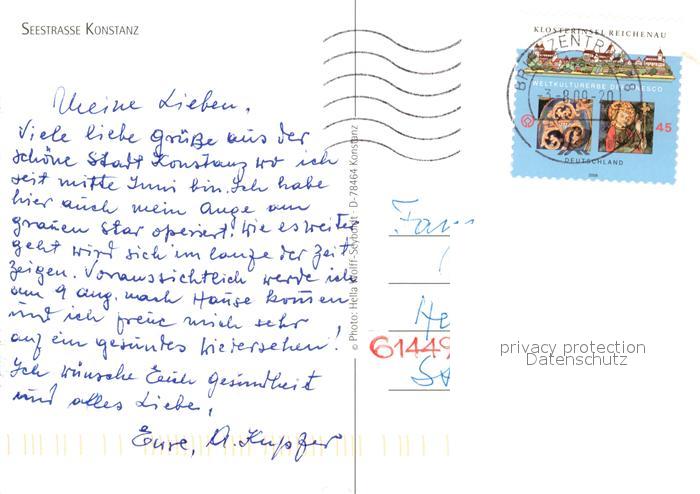 SEESTRASSE KONSTANZ
Meine Lieben,
Viele liebe Grüße aus der
schöne Stadt Konstanz wo ich
seit mitte Juni bin. Ich habe
hier auch mein Auge am
grauen star operiert. Wie es weiter
geht wird sich im laufe der Zeit
zeigen. Voraussichtlich werde ich
am 9 aug. nach Hause kommen
und ich freue mich sehr
auf ein gesundes Wiedersehen!
Ich wünsche Euch gesundheit
und alles Liebe,
Eure, A. Kupfer
© Photo: Hella Wolff-Seybold† - D-78464 Konstanz
KLOSTERINSEL REICHENAU
BRIEFZENTRUM 78
WELTKULTURERBE DER UNESCO
-8.09-20
45
DEUTSCHLAND
2008
Fam
He
61449
St
privacy protection
Datenschutz